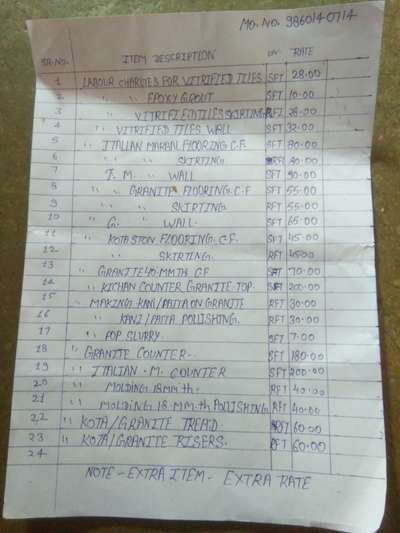 MO. NO. 9860140714
SR. NO. ITEM DESCRIPTION UN. RATE
1 LABOUR CHARGES FOR VITRIFIED TILES SFT 28.00
2 " " EPOXY GROUT SFT 10.00
3 " " VITRIFIED TILES SKIRTING RFT 28.00
4 " VITRIFIED TILES WALL SFT 32.00
5 " ITALIAN MARBAL FLOORING C.F SFT 80.00
6 " " SKIRTING RFT 80.00
7 " I. M. " WALL SFT 90.00
8 " " GRANITE FLOORING C.F SFT 55.00
9 " " SKIRTING RFT 55.00
10 " G. " WALL SFT 65.00
11 " KOTA STON FLOORING C.F. SFT 45.00
12 " " SKIRTING RFT 45.00
13 " GRANITE 40-MM Th C.F SFT 70.00
14 " KICHAN COUNTER GRANITE TOP. SFT 200.00
15 " MAKING KANI/PATTA ON GRANITE RFT 30.00
16 " " KANI/PATTA POLLISHING. RFT 30.00
17 " " POP SLURRY. SFT 7.00
18 " GRANITE COUNTER - . SFT 180.00
19 " ITALIAN . M. COUNTER SFT 200.00
20 " MOLDING 18 MM th - RFT 40.00
21 " MOLDING 18 - MM. th POLLISHING RFT 40.00
22 " KOTA / GRANITE TREAD RFT 60.00
23 " KOTA / GRANITE RISERS. RFT 60.00
24
NOTE - EXTRA ITEM - EXTRA RATE